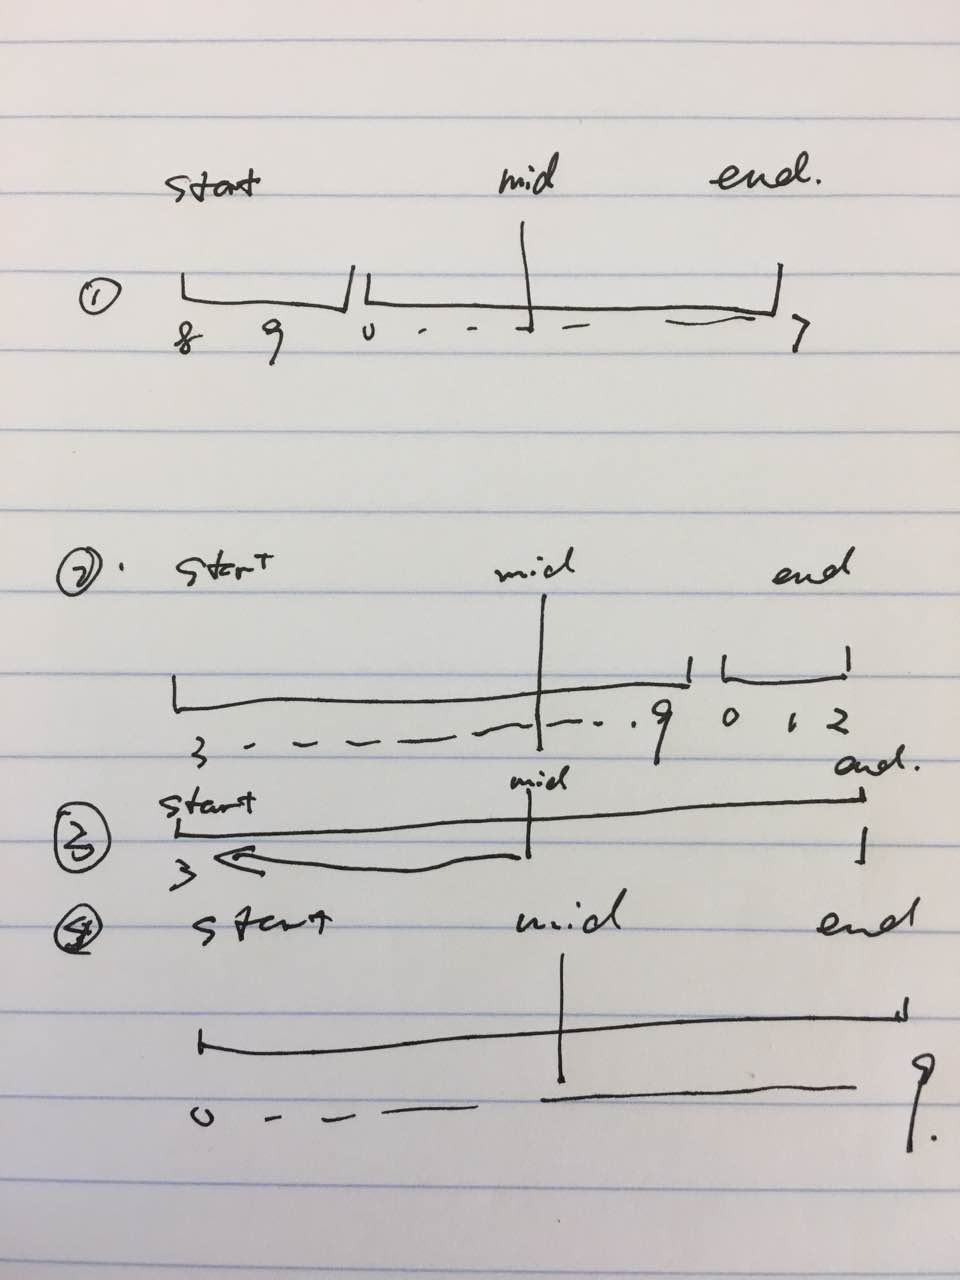 start mid end.
① 8 9 0 - - - - 7
②. start mid end
3 - - - - - - . 9 0 1 2
start mid end.
③ 3
④ start mid end
0 - - 9.